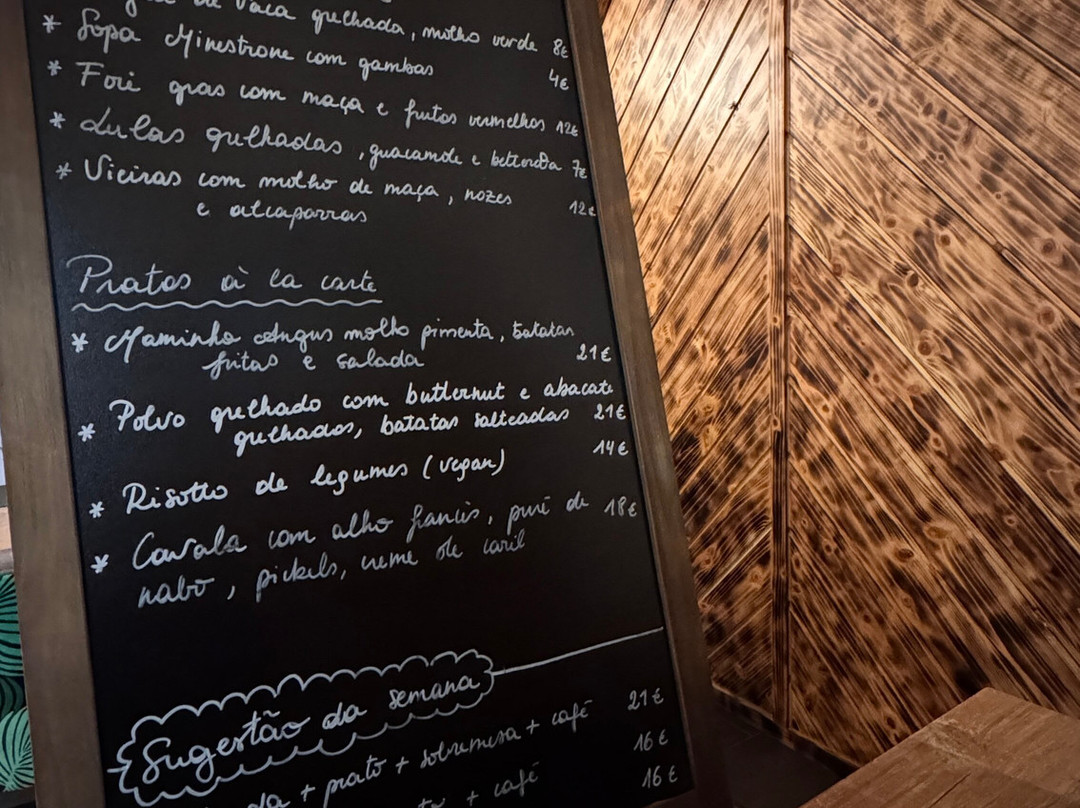 de vaca grelhada, molho verde 8€
* Sopa Minestrone com gambas 4€
* Foie gras com maça e frutos vermelhos 12€
* Lulas grelhadas, guacamole e beterraba 7€
* Vieiras com molho de maça, nozes
e alcaparras 12€
Pratos à la carte
* Maminha Angus molho pimenta, batatas
fritas e salada 21€
* Polvo grelhado com butternut e abacate
grelhados, batatas salteadas 21€
* Risotto de legumes (vegan) 14€
* Cavala com alho francês, puré de 18€
nabo, pickels, creme de caril
Sugestão da semana
+ prato + sobremesa + café 21€
+ café 16€
16€